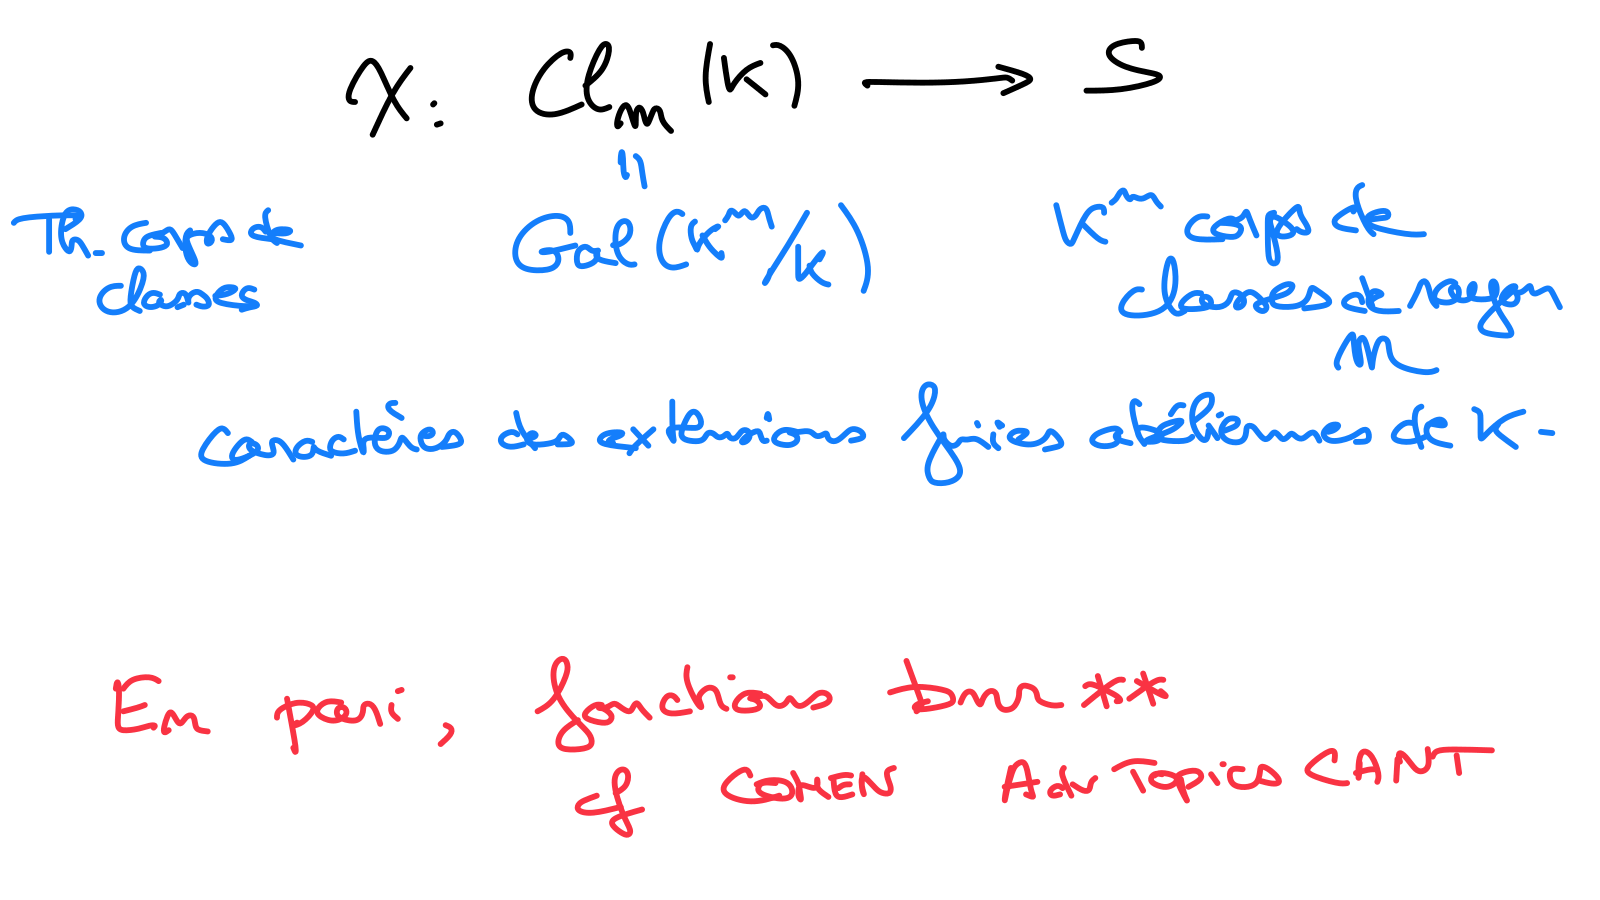 χ: Cl_m (K) ⟶ S
=
Th. corps de classes
Gal(K^m/K)
K^m corps de classes de rayon m
caractères des extensions finies abéliennes de K.
En pari, fonctions bnr**
cf COHEN Adv Topics CANT